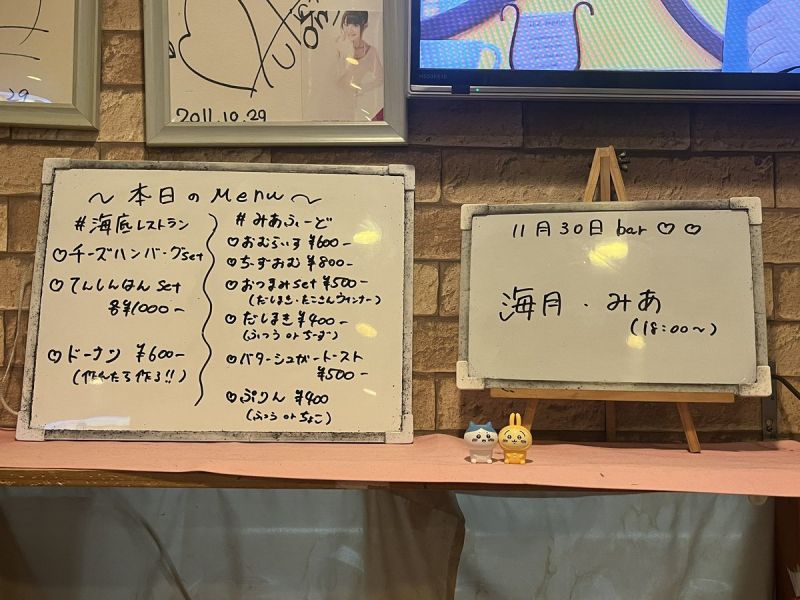 29
2011.10.29
HISENSE
～ 本日の Menu ～
#海底レストラン
♡チーズハンバーグset
♡てんしんはん set
各¥1000ー
♡ドーナツ ¥600ー
#みあふーど
♡おむらいす ¥600ー
♡ちーずおむ ¥800ー
♡おつまみset ¥500ー
(だしまき・たこさんウィンナー)
♡だしまき ¥400ー
(ふつう or ちーず)
♡バターシュガートースト
¥500ー
♡ぷりん ¥400
(ふつう or ちょこ)
11月30日 bar ♡ ♡
海月・みあ
(18:00〜)